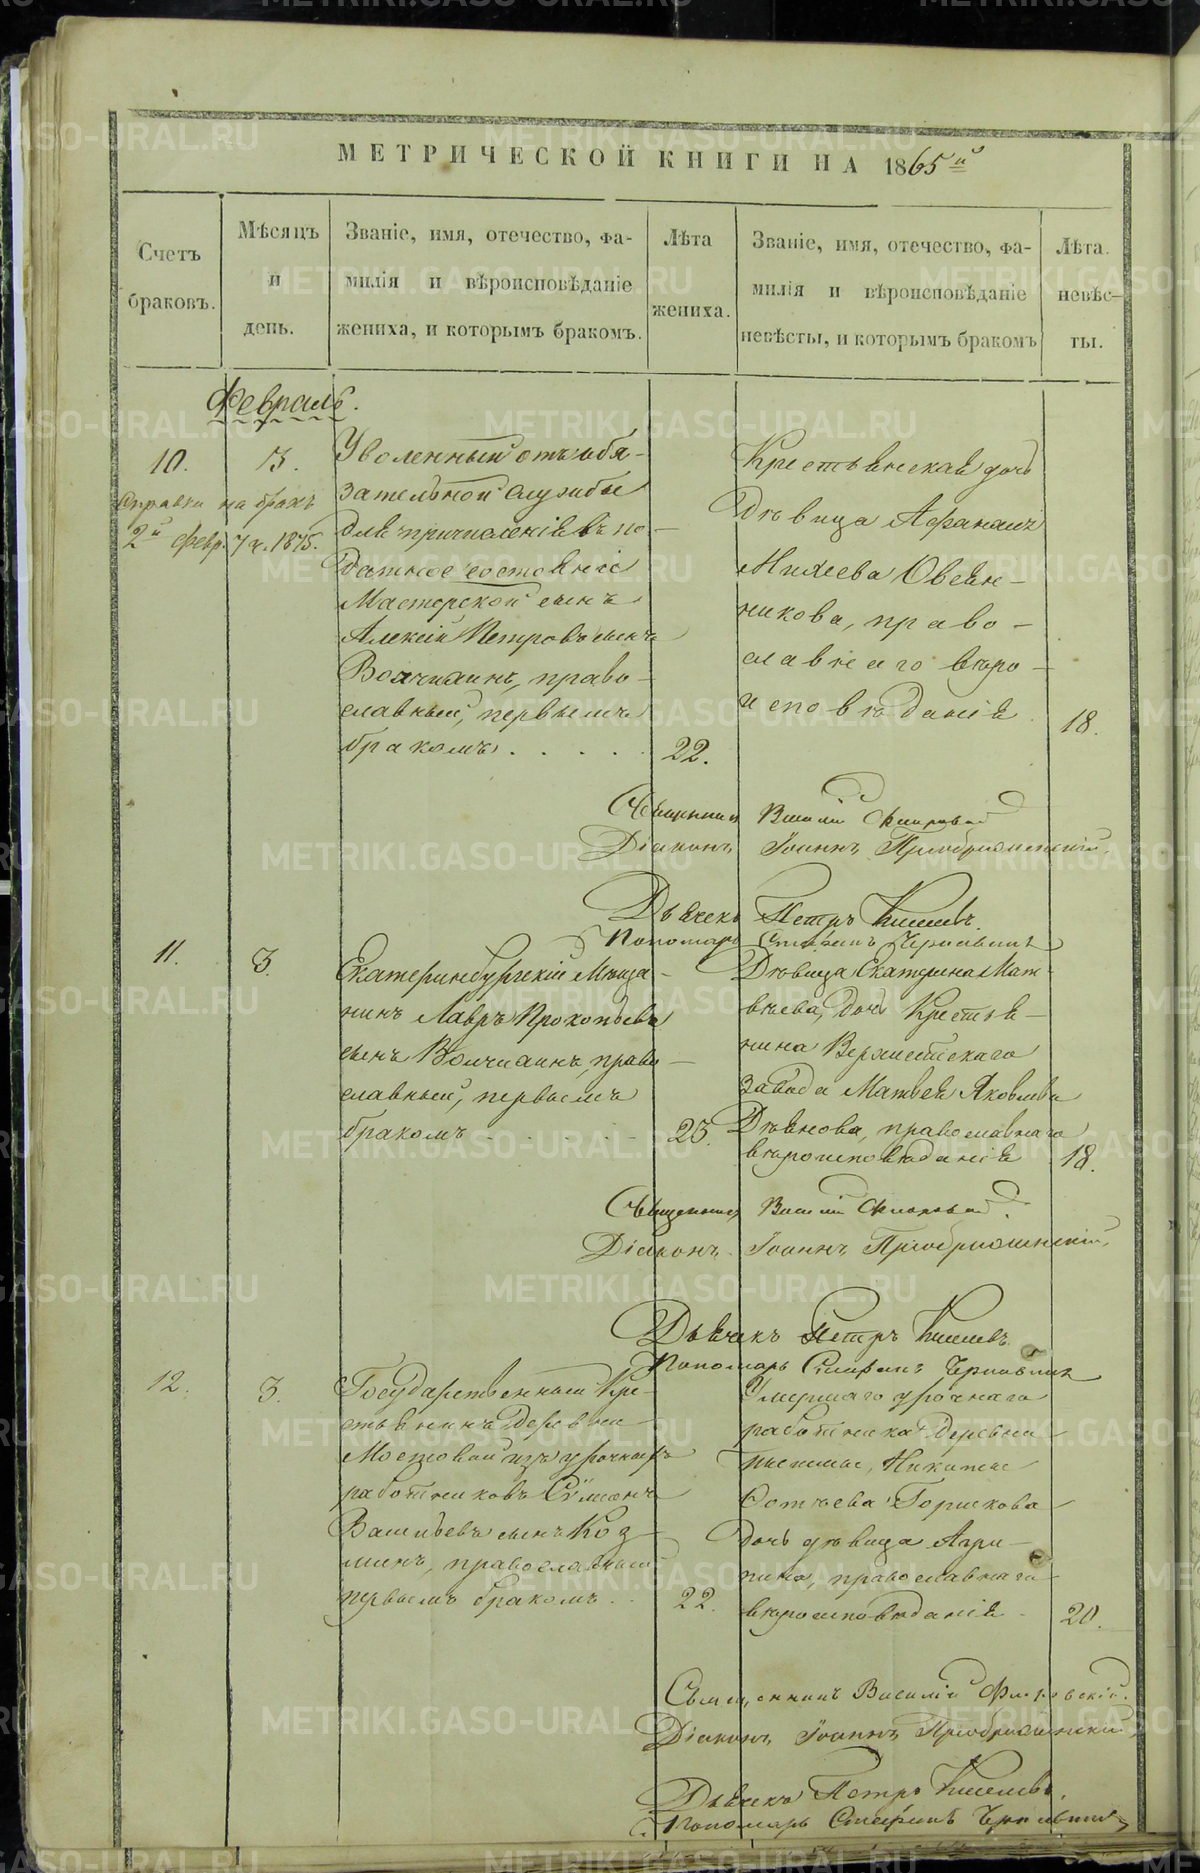 МЕТРИЧЕСКОЙ КНИГИ НА 1865й
Счетъ браковъ.
Мѣсяцъ и день.
Званіе, имя, отечество, фа-
милія и вѣроисповѣданіе
жениха, и которымъ бракомъ.
Лѣта жениха.
Званіе, имя, отечество, фа-
милія и вѣроисповѣданіе
невѣсты, и которымъ бракомъ
Лѣта невѣс-
ты.
Февраль.
10.
3.
Справка на бракъ
2й Февр. 1875.
Уволенный отъ обя-
зательной службы
для причисленія въ по-
датное состояніе
Мастерской сынъ
Алексій Петровъ сынъ
Волчихинъ, право-
славный, первымъ
бракомъ . . . . .
22.
Крестьянская дочь
Дѣвица Афанасія
Михеева Овсян-
никова, право-
славнаго вѣро-
исповѣданія
18.
Священникъ Василій
Діаконъ Іоаннъ Преображенскій.
Дьячекъ Петръ Киселевъ.
Пономарь Стефанъ Чернавинъ
11.
3.
Екатеринбургскій Мѣща-
нинъ Лавръ Прокопьевъ
сынъ Волчихинъ, право-
славный, первымъ
бракомъ . . . . .
23.
Дѣвица Екатерина Мат-
вѣева, дочь Крестья-
нина Верхисетскаго
завода Матвея Яковлева
Дѣянова, православнаго
вѣроисповѣданія
18.
Священникъ Василій
Діаконъ Іоаннъ Преображенскій,
Дьячекъ Петръ Киселевъ.
Пономарь Стефанъ Чернавинъ
12.
3.
Государственный Кре-
стьянинъ Деревни
Мостовой изъ урочныхъ
работниковъ Сѵмеонъ
Васильевъ сынъ Коз-
минъ, православный
первымъ бракомъ . .
22.
Умершаго урочнаго
работника Деревни
Пышмы, Никиты
Фотѣева Горискова
дочь дѣвица Агри-
пина, православнаго
вѣроисповѣданія
20.
Священникъ Василій
Діаконъ Іоаннъ Преображенскій,
Дьячекъ Петръ Киселевъ.
Пономарь Стефанъ Чернавинъ
METRIKI.GASO-URAL.RU